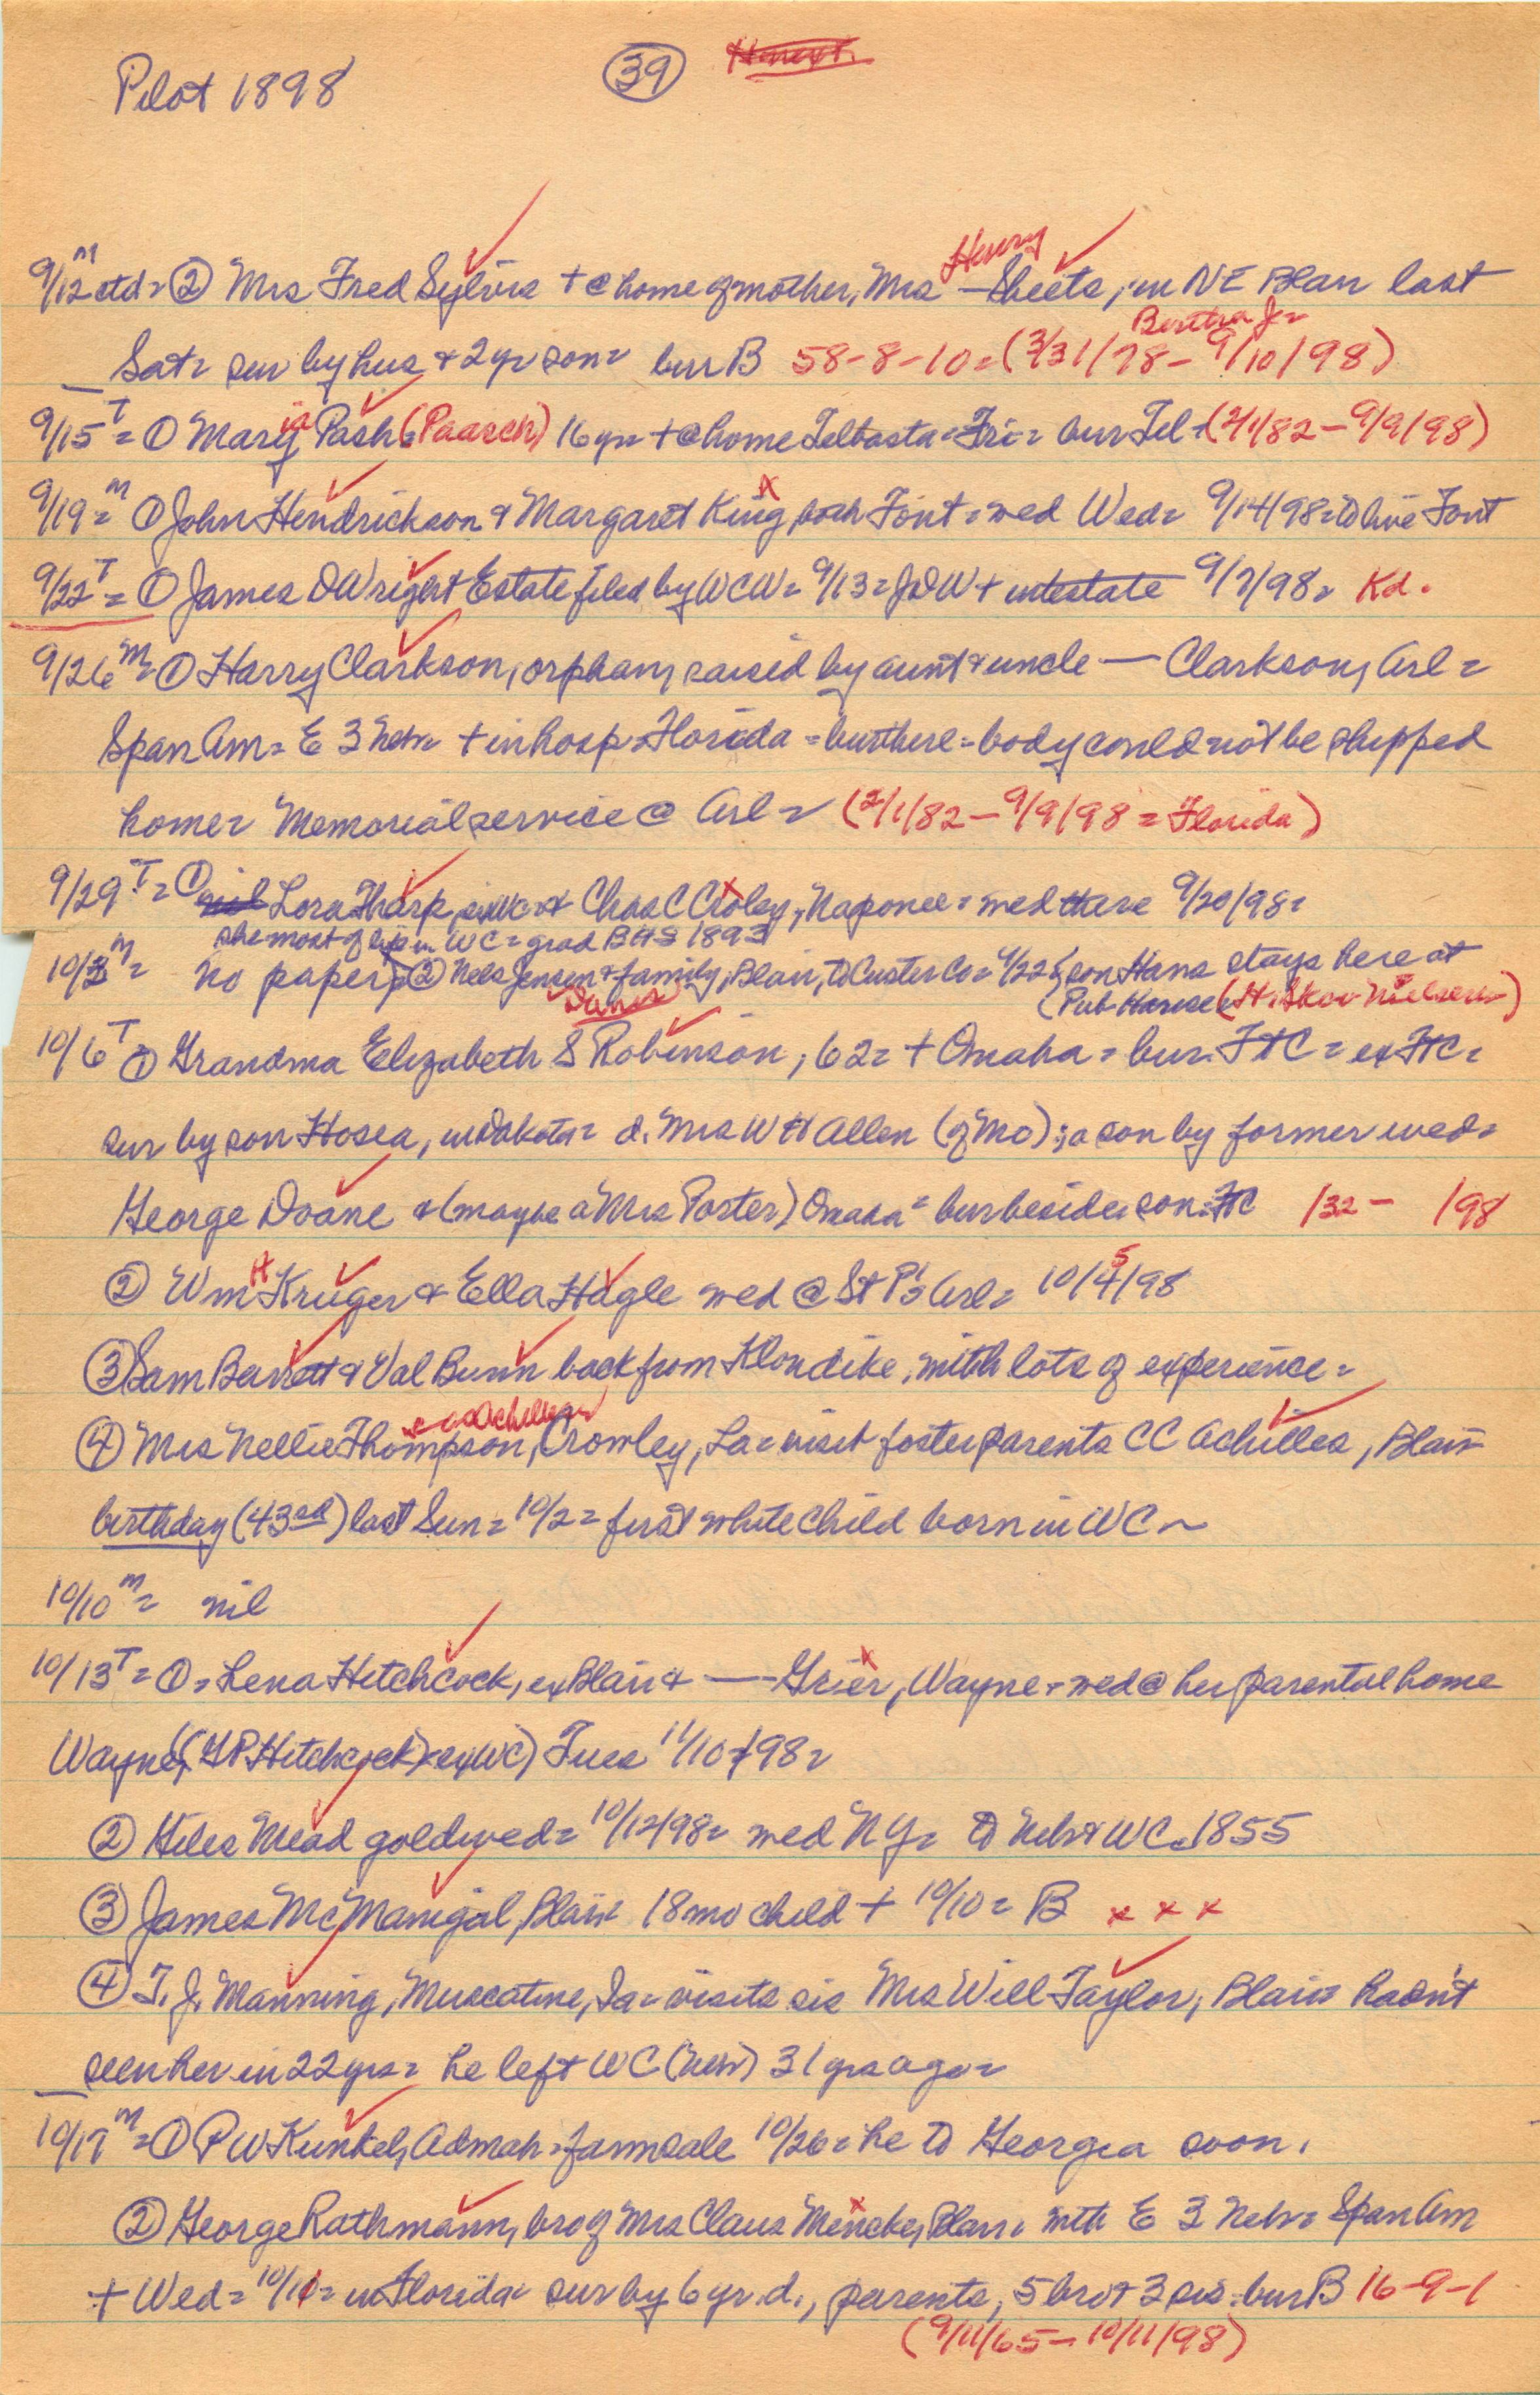 Pilot 1898 (39)
9/12 M ctd = ② Mrs Fred Sylvis + @ home of mother, Mrs Henry — Sheets, in NE Blair last
Bertha J =
Sat = sur by hus & 2 yr son = bur B 58-8-10 = (3/31/78 - 9/10/98)
9/15 T = ① Mary ia Pash = (Paasch) 16 yr = + @ home Telbasta = Fri = bur Tel = (2/1/82 - 9/9/98)
9/19 M = ① John Hendrickson & Margaret King, both Font = wed Wed = 9/14/98 = to live Font
9/22 T = ① James D Wright Estate filed by WCW = 9/13 = JDW + intestate 9/7/98 = Kd.
9/26 M = ① Harry Clarkson, orphan, raised by aunt & uncle — Clarkson, Arl =
Span Am = E 3 Nebr = + in hosp = Florida = bur there = body could not be shipped
home = Memorial service @ Arl = (2/1/82 - 9/9/98 = Florida)
9/29 T = ① nil Lora Tharp, exWC = & Chas C Croley, Naponee = wed there 9/20/98 =
she most of life in WC = grad BHS 1893
10/3 M = no paper ② Nels Jensen & family, Blair, to Custer Co = 4/22 { son Hans stays here at
(Pub House (H. Skov Nielsen)
10/6 T = ① Grandma Elizabeth S Robinson, 62 = + Omaha = bur. FtC = ex FtC =
sur by son Hosea, in Dakota = d. Mrs W H Allen (of Mo); a son by former wed =
George Doane & (maybe a Mrs Porter) Omaha = bur beside son = FtC /32 - /98
② Wm H Kruger & Ella Hagle wed @ St P's Arl = 10/4/98 5
③ Sam Barrett & Val Bunn back from Klondike, with lots of experience =
④ Mrs Nellie Thompson, Crowley, La = visit foster parents CC Achilles, Blair =
birthday (43rd) last Sun = 10/2 = first white child born in WC ~
10/10 M = nil
10/13 T = ① = Lena Hitchcock, ex Blair & — Grier, Wayne = wed @ her parental home
Wayne, (GP Hitchcock) = exWC) Tues 11/10/98 =
② Giles Mead gold wed = 10/12/98 = wed NY = to Nebr & WC 1855
③ James McManigal, Blair 18 mo child + 10/10 = B x x x
④ T. J. Manning, Muscatine, Ia = visits sis Mrs Will Taylor, Blair = hadn't
seen her in 22 yrs = he left WC (Nebr) 31 yrs ago =
10/17 M = ① P W Kunkel, Admah = farm sale 10/26 = he to Georgia soon.
② George Rathmann, bro of Mrs Claus Mencke, Blair, with E 3 Nebr = Span Am
+ Wed = 10/11 = in Florida = sur by 6 yr. d., parents, 5 bro & 3 sis = bur B 16-9-1
(9/11/65 - 10/11/98)